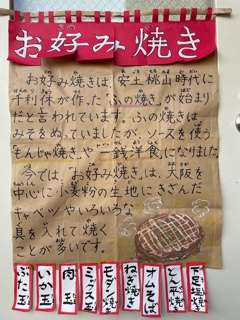 お好み焼き
お好み焼きは、安土桃山時代に
千利休が作った「ふの焼き」が始まり
だと言われています。ふの焼きは、
みそをぬっていましたが、ソースを使う
もんじゃ焼きや一銭洋食になりました。
今では、お好み焼きは、大阪を
中心に小麦粉の生地にきざんだ
キャベツやいろいろな
具を入れて焼く
ことが多いです。
ぶた玉
いか玉
肉玉
ミックス玉
モダン焼き
ねぎ焼き
オムそば
とん平焼き